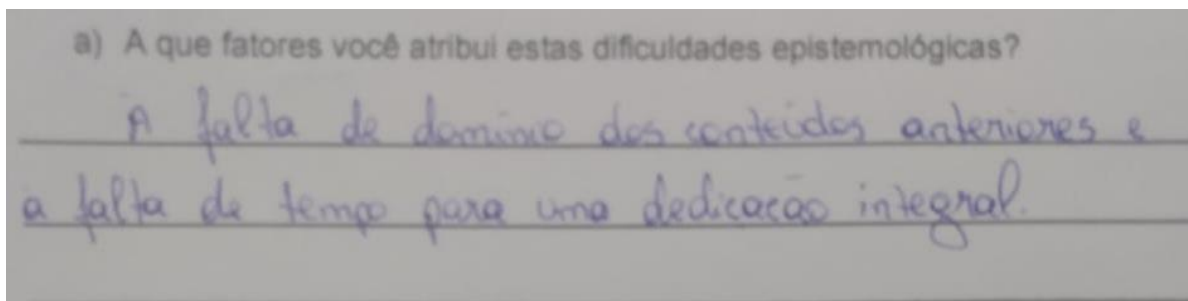 a) A que fatores você atribui estas dificuldades epistemológicas?
A falta de domínio dos conteúdos anteriores e
a falta de tempo para uma dedicação integral.